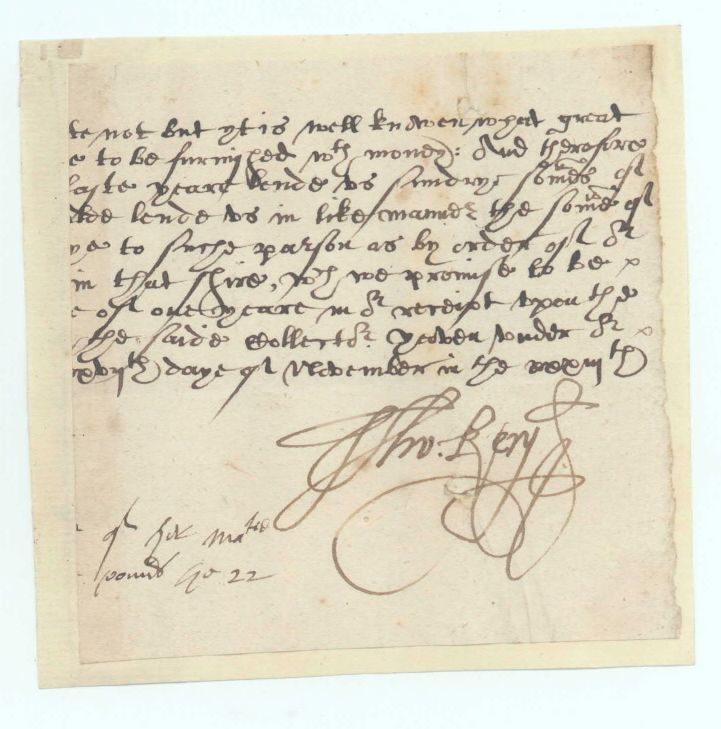 te not but yt is well knowen what great
e to be furnished wth money: And therefore
laste yeare lende us sundrye somes of
lende us in like manner the some of
ye to suche parson as by order of or
in that shire, wch we promise to be
e of one yeare in or receipt upon the
the saide Collector. yeoven under or
xxviith daye of November in the xxxiiith
Tho. Kery
of her Mates
pound 22